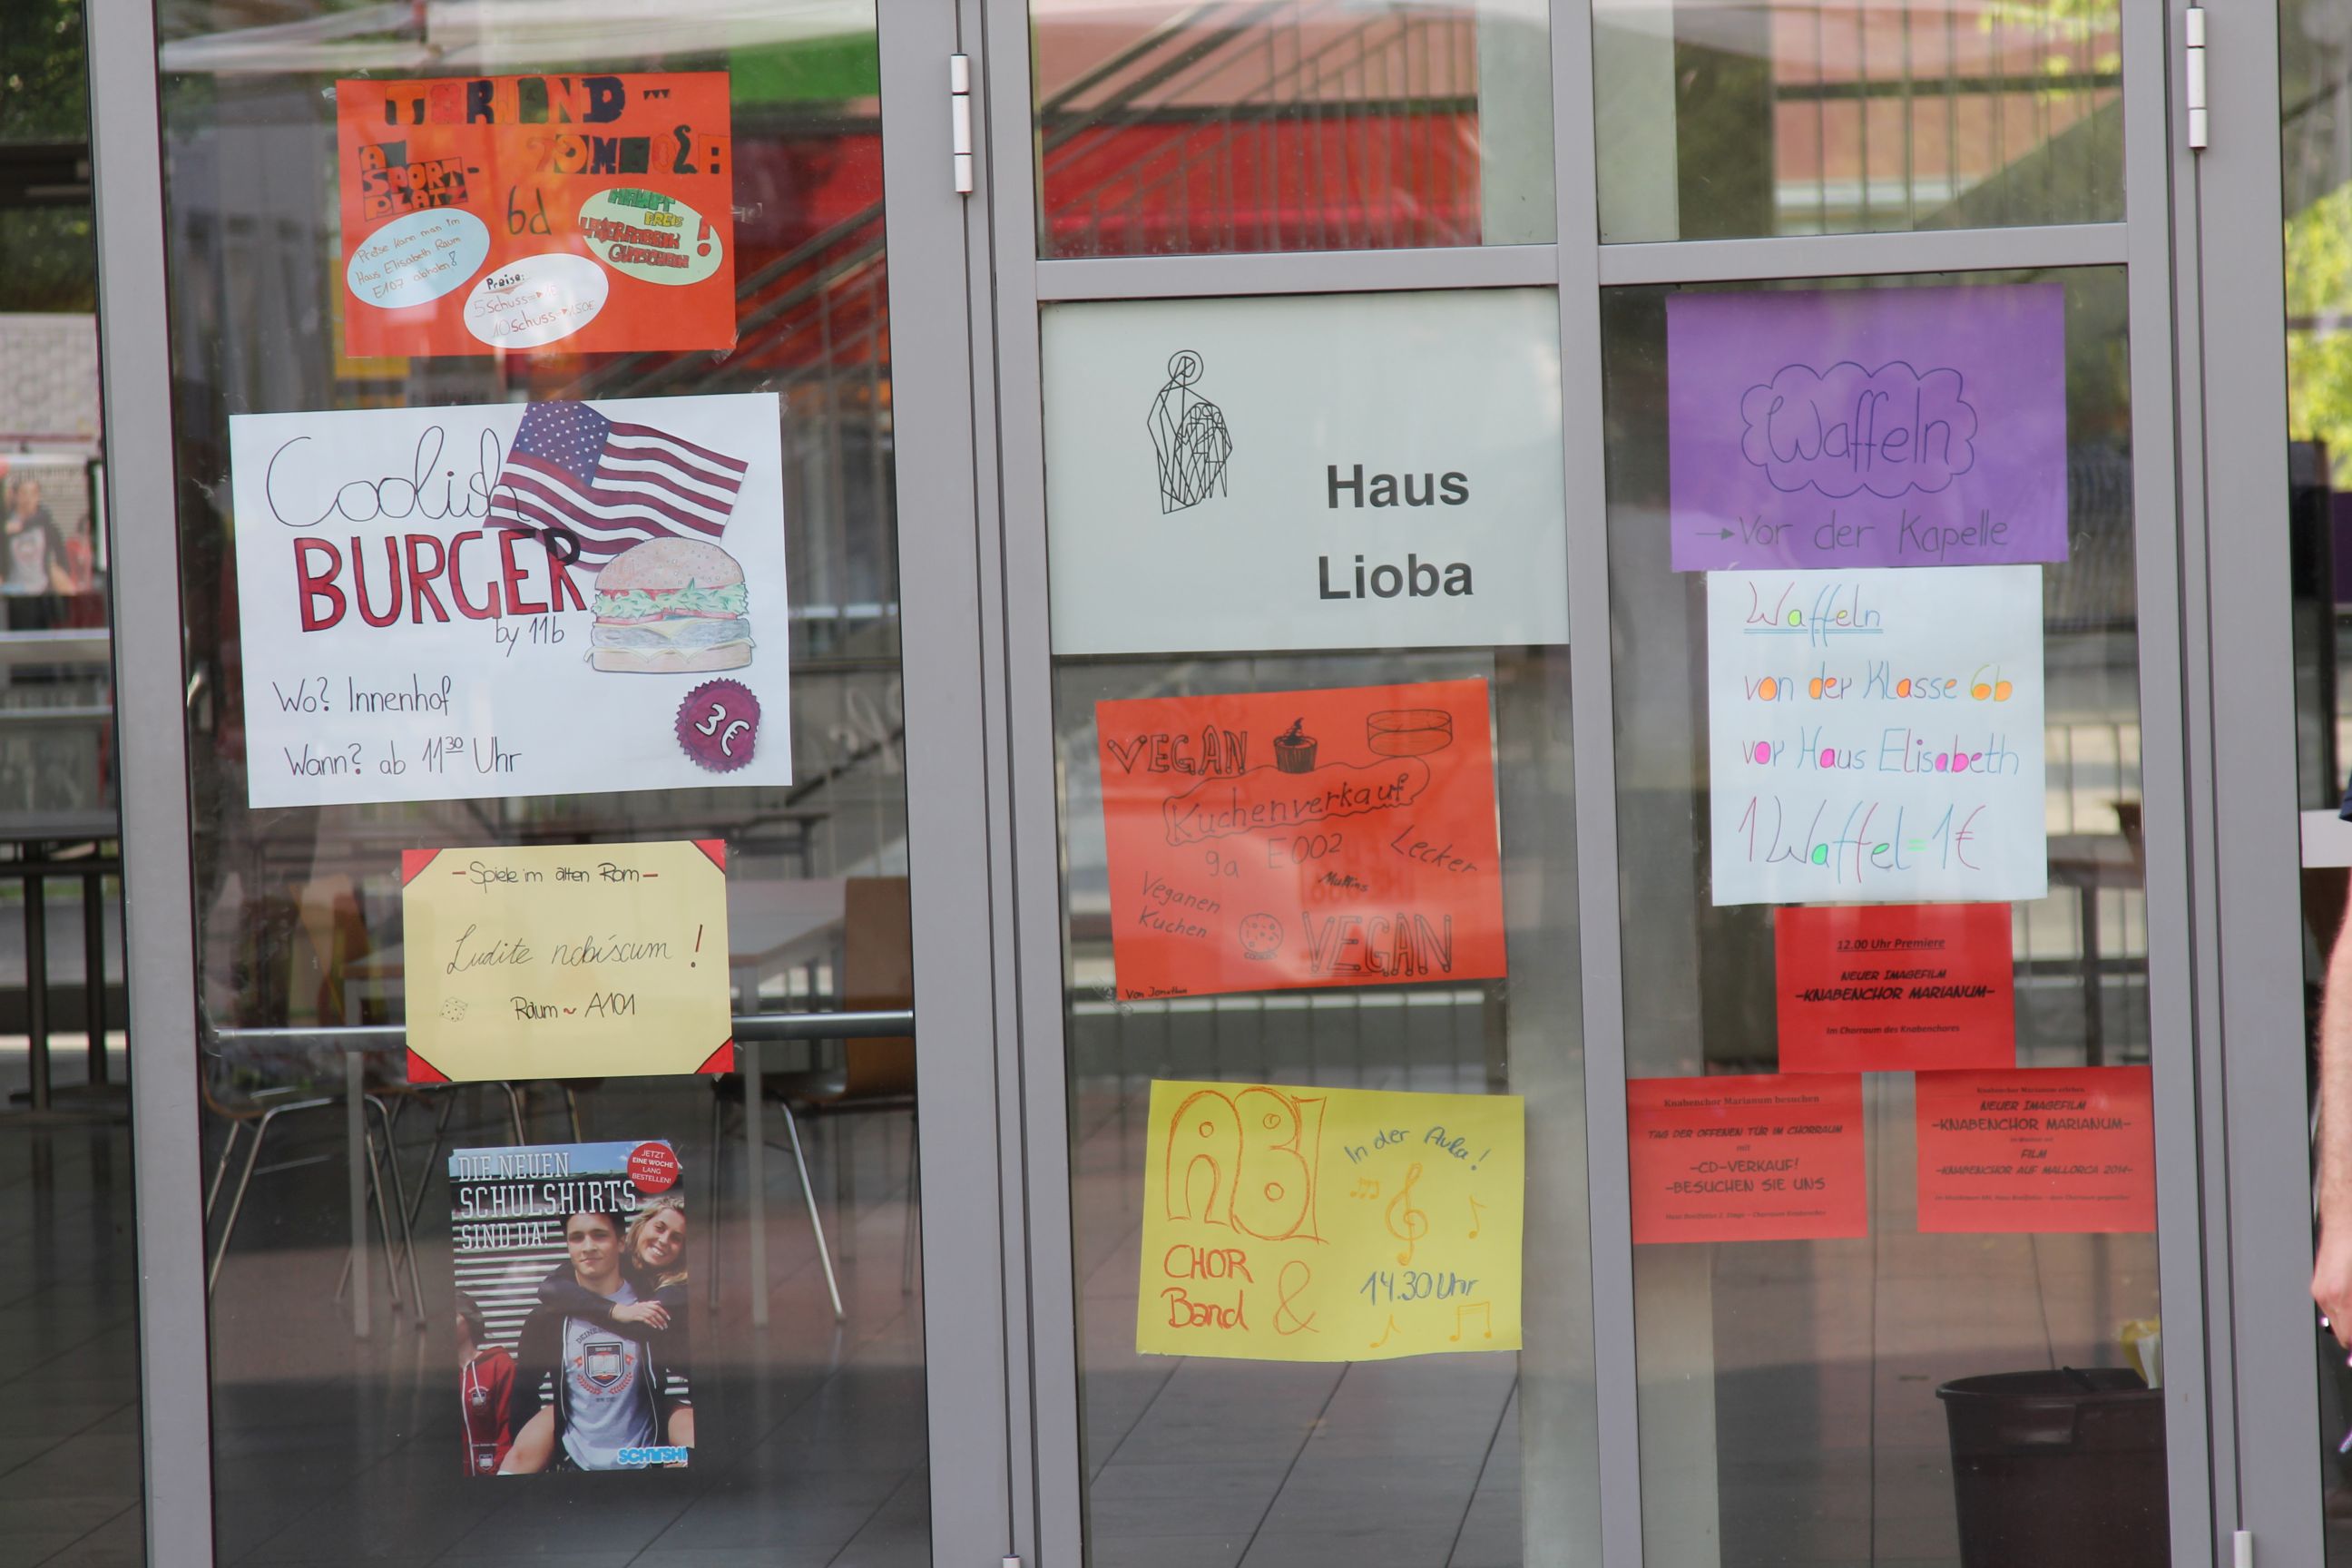 TORWAND-
TOMBOLA:
A
SPORT-
PLATZ
6d
HAUPT
PREIS
GUTSCHEIN!
Preise kann man im
Haus Elisabeth Raum
E107 abholen!
Preise:
5 Schuss
10 Schuss
Coolish
BURGER
by 11b
Wo? Innenhof
Wann? ab 11³⁰ Uhr
3€
-Spiele im alten Rom-
Ludite nobiscum!
Raum ~ A101
DIE NEUEN
SCHULSHIRTS
SIND DA!
JETZT
EINE WOCHE
LANG
BESTELLEN!
Haus
Lioba
VEGAN
Kuchenverkauf
9a E002 Lecker
Muffins
Veganen
Kuchen
VEGAN
Von Jonathan
ABI
In der Aula!
CHOR
Band &
14.30 Uhr
Waffeln
→Vor der Kapelle
Waffeln
von der Klasse 6b
vor Haus Elisabeth
1 Waffel=1€
12.00 Uhr Premiere
NEUER IMAGEFILM
-KNABENCHOR MARIANUM-
Im Chorraum des Knabenchores
Knabenchor Marianum besuchen
TAG DER OFFENEN TÜR IM CHORRAUM
mit
-CD-VERKAUF!
-BESUCHEN SIE UNS
Knabenchor Marianum erleben
NEUER IMAGEFILM
-KNABENCHOR MARIANUM-
FILM
-KNABENCHOR AUF MALLORCA 2014-